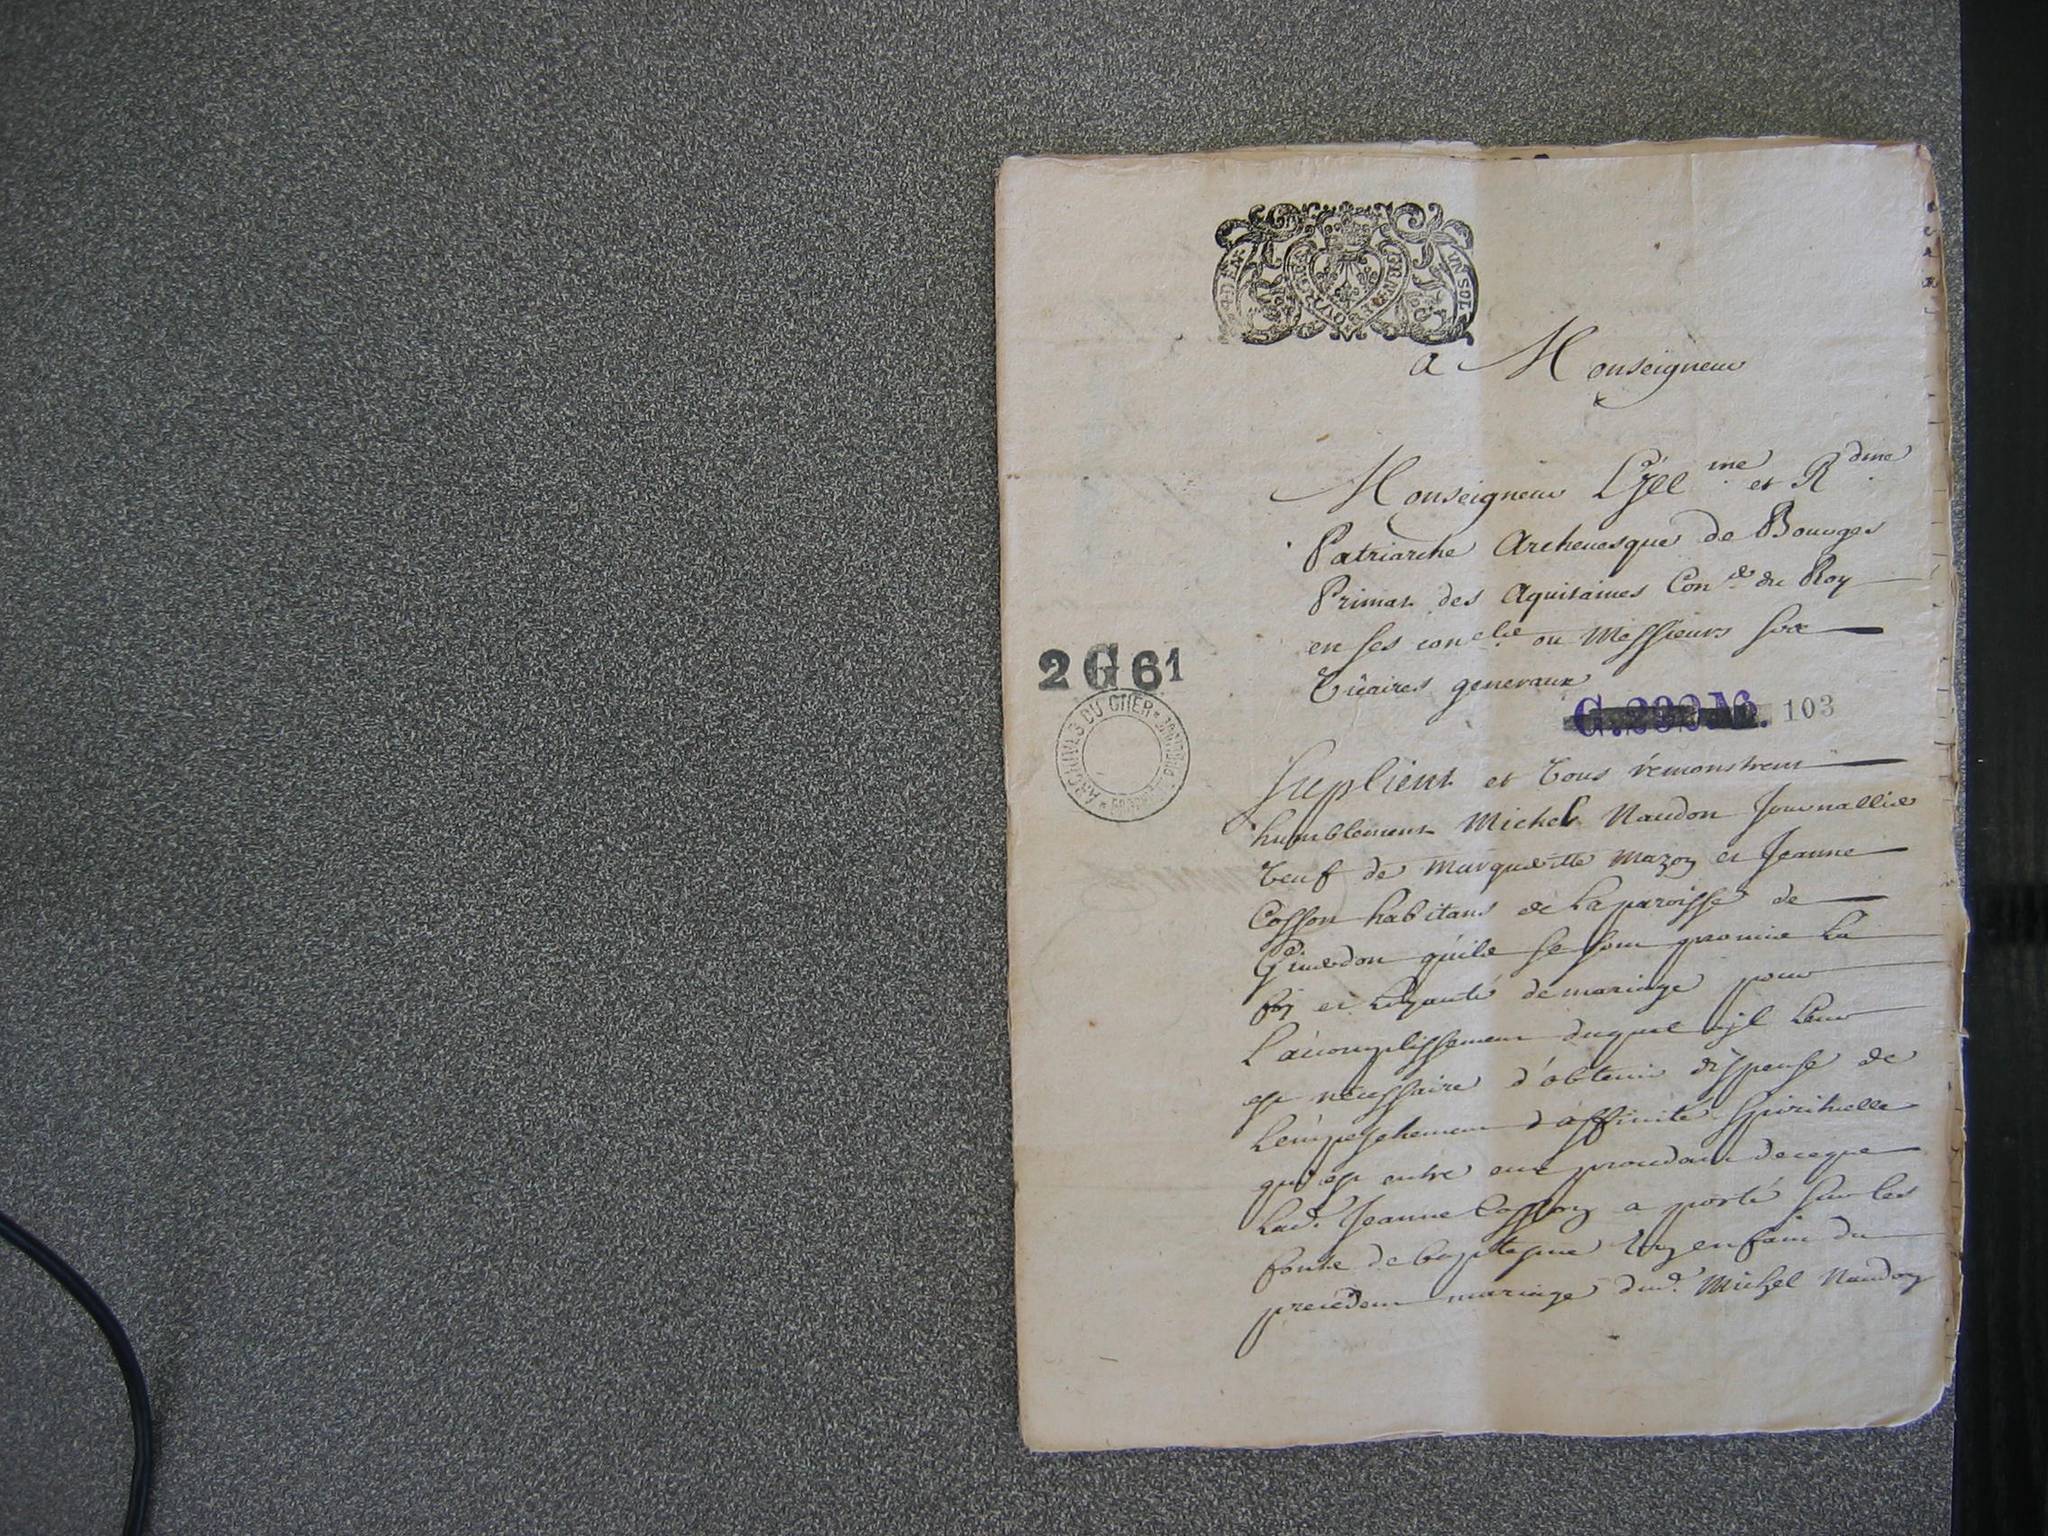 a Monseigneur
Monseigneur L'Jll.me et R.dme
Patriarche Archeuesque de Bourges
Primat des Aquitaines Con.er du Roy
en ses con.elz ou Messieurs ses
Vicaires generaux
2 G 61
ARCHIVES DU CHER
G. 103
Suplient et vous remonstrent
humblement Michel Naudon Journallier
veuf de Margueritte Mazoy et Jeanne
Cosson habitans de la paroisse de
Giverdon qu'ils se sont promis la
foy et loyauté de mariage pour
l'acomplissement duquel il leur
est necessaire d'obtenir dispense de
l'empeschement d'affinité spirituelle
qui est entre eux procedant de ce que
lad. Jeanne Cosson a porté sur les
fonts de baptesme un enfant du
precedent mariage dud. Michel Naudon